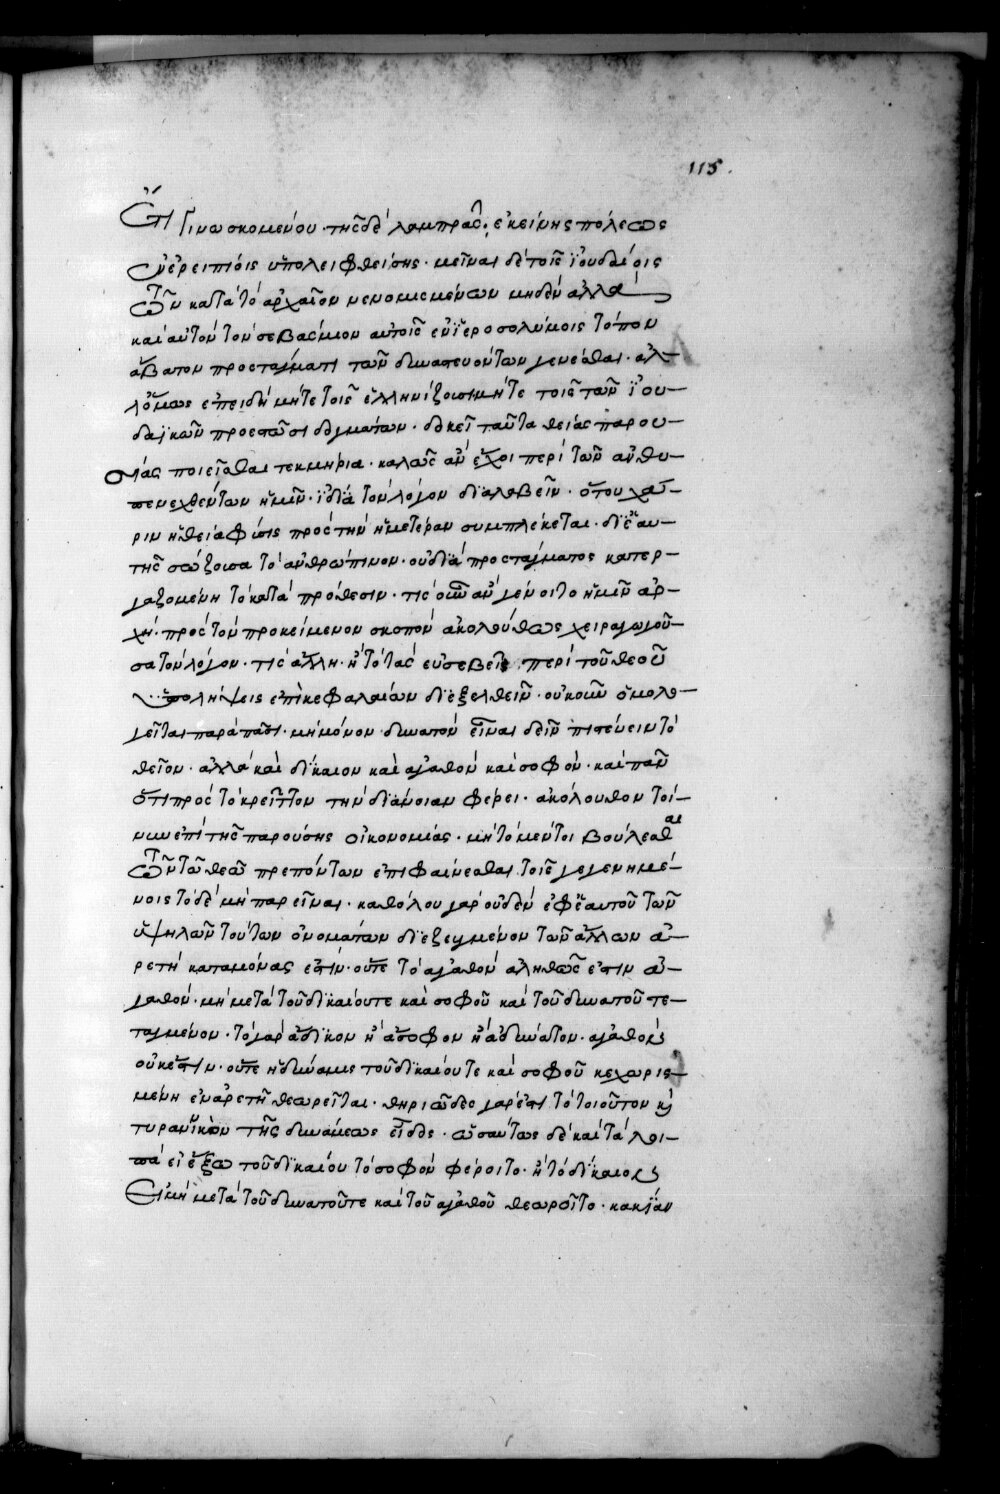 115.
ἔτι γινωσκομένου· τῆς δὲ λαμπρᾶς ἐκείνης πόλεως
ἐν ἐρειπίοις ὑπολειφθείσης· μεῖναι δὲ τοῖς ἰουδαίοις
τῶν κατὰ τὸ ἀρχαῖον νενομισμένων μηδὲν ἀλλὰ
καὶ αὐτὸν τὸν σεβάσμιον αὐτοῖς ἐν ἱεροσολύμοις τόπον
ἄβατον προστάγματι τῶν δυναστευόντων γενέσθαι· ἀλ-
λ' ὅμως ἐπειδὴ μήτε τοῖς ἑλληνίζουσι μήτε τοῖς τῶν ἰου-
δαϊκῶν προεστῶσι δογμάτων· δοκεῖ ταῦτα θείας παρου-
σίας ποιεῖσθαι τεκμήρια· καλῶς ἂν ἔχοι περὶ τῶν ἀνθυ-
πενεχθέντων ἡμῖν· ἰδίᾳ τὸν λόγον διαλαβεῖν· ὅτου χά-
ριν ἡ θεία φύσις πρὸς τὴν ἡμετέραν συμπλέκεται· δι' ἑαυ-
τῆς σώζουσα τὸ ἀνθρώπινον· οὐ διὰ προστάγματος κατερ-
γαζομένη τὸ κατὰ πρόθεσιν· τίς οὖν ἂν γένοιτο ἡμῖν ἀρ-
χὴ· πρὸς τὸν προκείμενον σκοπὸν ἀκολούθως χειραγωγοῦ-
σα τὸν λόγον· τίς ἄλλη· ἢ τὸ τὰς εὐσεβεῖς περὶ τοῦ θεοῦ
ὑπολήψεις ἐπὶ κεφαλαίων διεξελθεῖν· οὐκοῦν ὁμολο-
γεῖται παρὰ πᾶσι· μὴ μόνον δυνατὸν εἶναι δεῖν πιστεύειν τὸ
θεῖον· ἀλλὰ καὶ δίκαιον καὶ ἀγαθὸν καὶ σοφὸν· καὶ πᾶν
ὅτι πρὸς τὸ κρεῖττον τὴν διάνοιαν φέρει· ἀκόλουθον τοί-
νυν ἐπὶ τῆς παρούσης οἰκονομίας· μὴ τὸ μέν τι βούλεσθαι
τῶν τῷ θεῷ πρεπόντων ἐπιφαίνεσθαι τοῖς γεγενημέ-
νοις τὸ δὲ μὴ παρεῖναι· καθόλου γὰρ οὐδὲν ἐφ' ἑαυτοῦ τῶν
ὑψηλῶν τούτων ὀνομάτων διεζευγμένον τῶν ἄλλων ἀ-
ρετὴ καταμόνας ἐστὶν· οὔτε τὸ ἀγαθὸν ἀληθῶς ἐστιν ἀ-
γαθὸν· μὴ μετὰ τοῦ δικαίου τε καὶ σοφοῦ καὶ τοῦ δυνατοῦ τε-
ταγμένον· τὸ γὰρ ἄδικον ἢ ἄσοφον ἢ ἀδύνατον· ἀγαθὸν
οὐκ ἔστιν· οὔτε ἡ δύναμις τοῦ δικαίου τε καὶ σοφοῦ κεχωρισ-
μένη ἐν ἀρετῇ θεωρεῖται· θηριῶδες γάρ ἐστι τὸ τοιοῦτον καὶ
τυραννικὸν τῆς δυνάμεως εἶδος· ὡσαύτως δὲ καὶ τὰ λοι-
πὰ εἰ ἔξω τοῦ δικαίου τὸ σοφὸν φέροιτο· ἢ τὸ δίκαιον
εἰ μὴ μετὰ τοῦ δυνατοῦ τε καὶ τοῦ ἀγαθοῦ θεωροῖτο· κακίαν